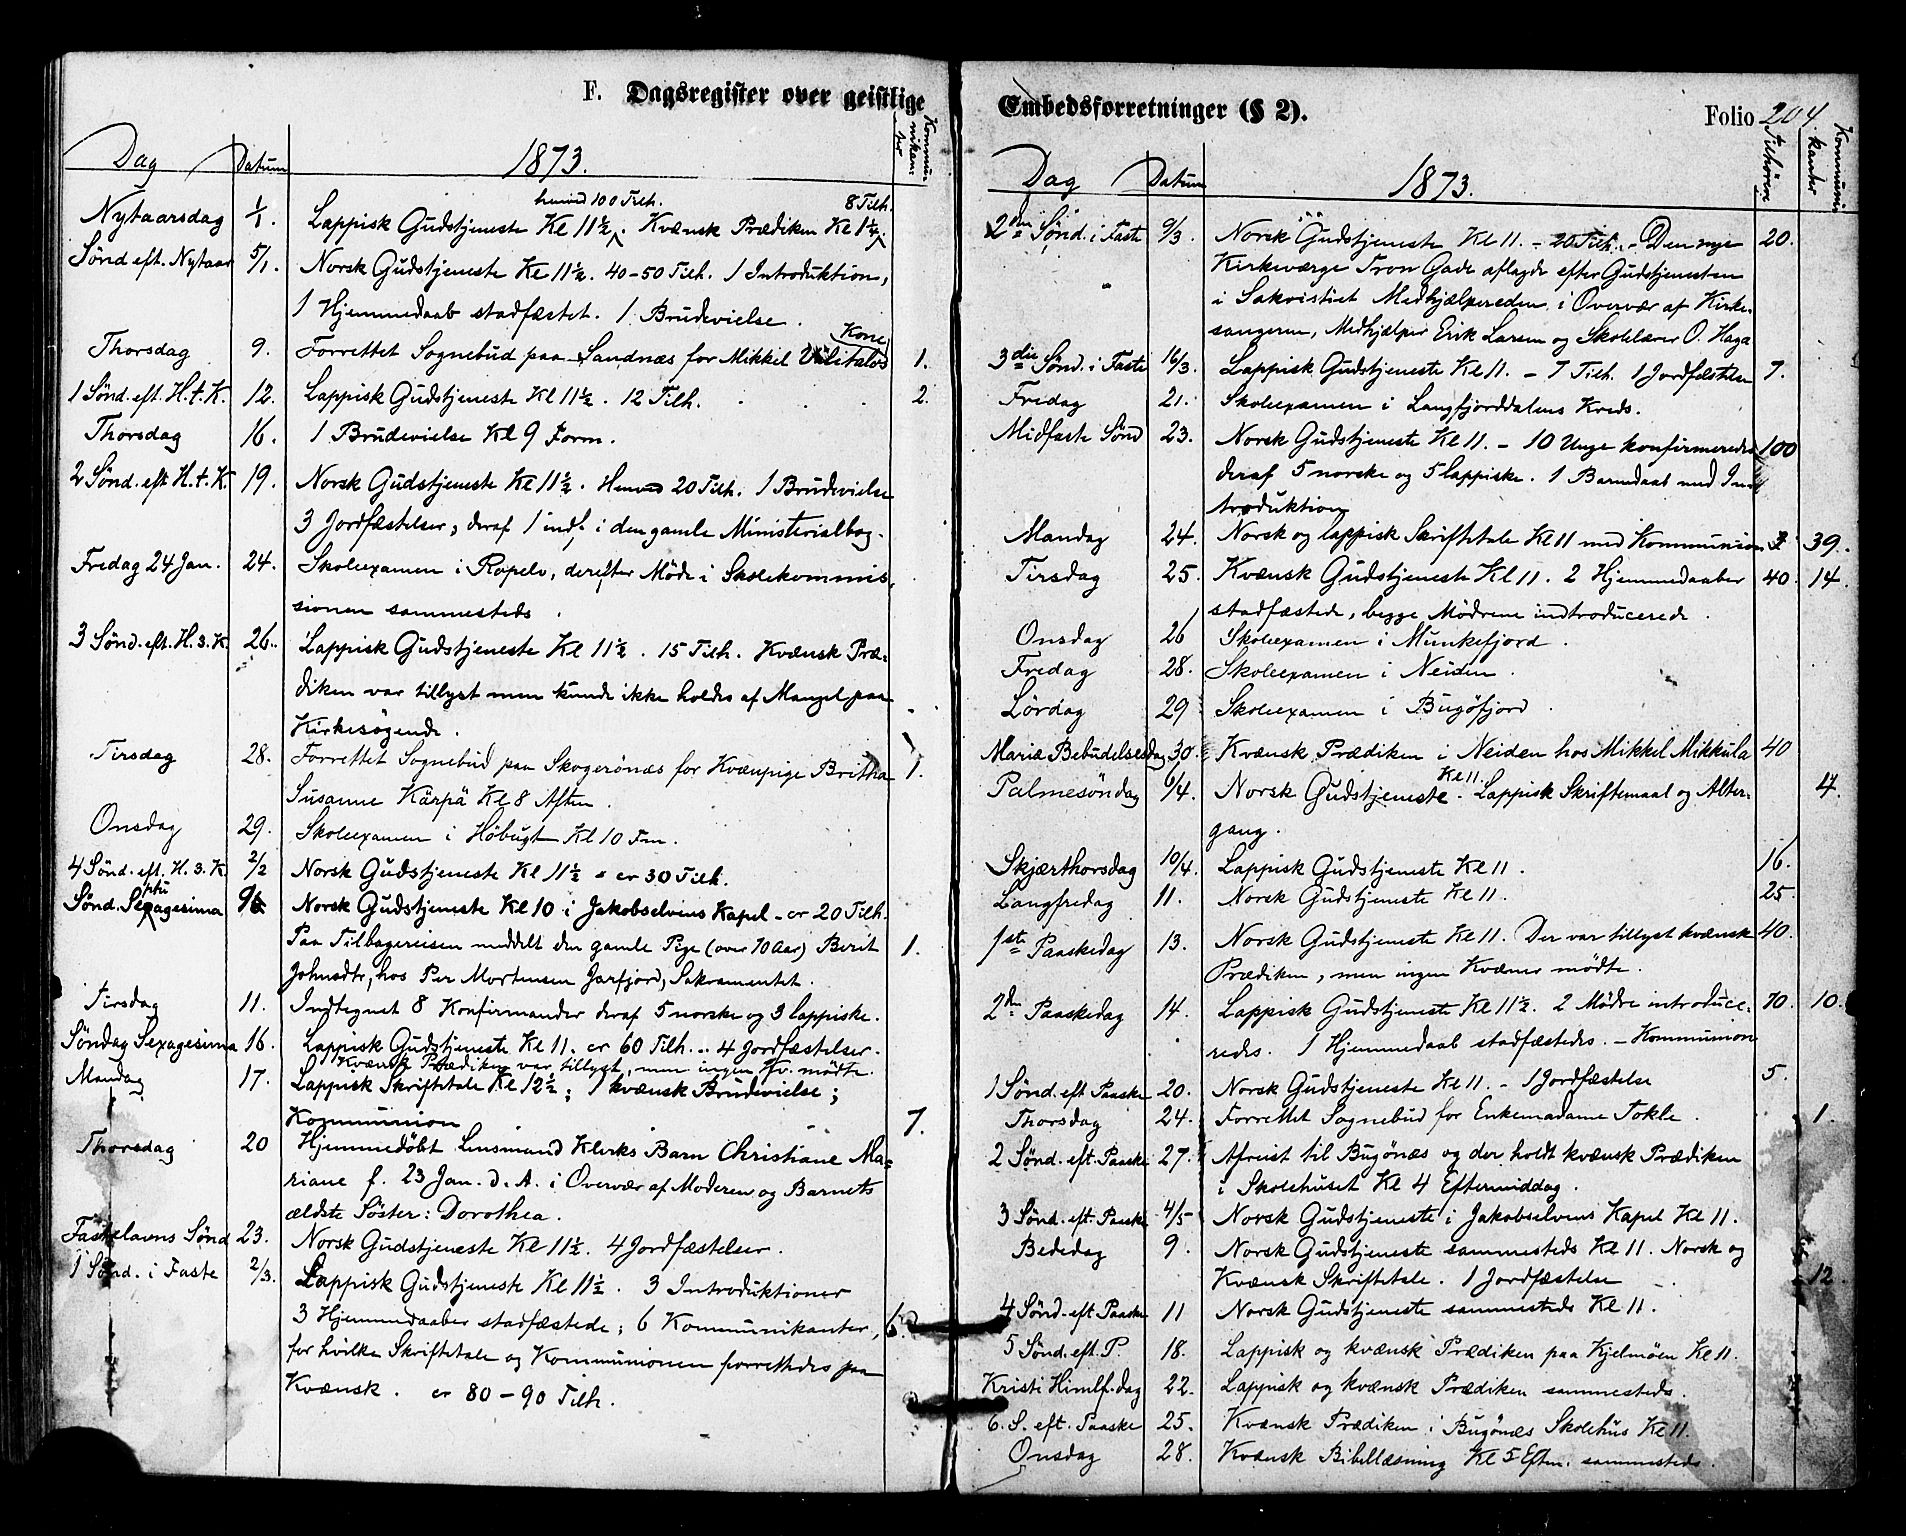 F. Dagsregister over geistlige
Kommunikanter
Dag Datum 1873.
henved 100 Tilh. 8 Tilh.
Nytaarsdag 1/1. Lappisk Gudstjeneste Kl 11½. Kvænsk Prædiken Kl 1½.
Sønd eft. Nytaar 5/1. Norsk Gudstjeneste Kl 11½. 40-50 Tilh. 1 Introduktion,
1 Hjemmedaab stadfæstet. 1 Brudevielse.
Kone
Thorsdag 9. Forrettet Sognebud paa Sandnæs for Mikkel Välitalos 1.
1 Sønd. eft. H.t.K. 12. Lappisk Gudstjeneste Kl 11½. 12 Tilh. 2.
Thorsdag 16. 1 Brudevielse Kl 9 Form.
2 Sønd. eft H.t.K. 19. Norsk Gudstjeneste Kl 11½. Henved 20 Tilh. 1 Brudevielse
3 Jordfæstelser, deraf 1 indf. i den gamle Ministerialbog.
Fredag 24 Jan. 24. Skoleexamen i Ropelv, derefter Møde i Skolekommis-
sionen sammesteds.
3 Sønd. eft. H.3.K. 26. Lappisk Gudstjeneste Kl 11½. 15 Tilh. Kvænsk Præ-
diken var tillyst men kunde ikke holdes af Mangel paa
Kirkesøgende.
Tirsdag 28. Forrettet Sognebud paa Skogerönæs for Kvænpige Britha 1.
Susanne Kärpä Kl 8 Aften.
Onsdag 29. Skoleexamen i Höbugt Kl 10 Fm.
4 Sønd. eft. H.3.K. 2/2 Norsk Gudstjeneste Kl 11½ - er 30 Tilh.
ptu
Sønd. Sexagesima 9. Norsk Gudstjeneste Kl 10 i Jakobselvens Kapel - er 20 Tilh.
Paa Tilbagereisen meddelt den gamle Pige (over 70 Aar) Berit 1.
Johnsdtr, hos Per Mortensen Jarfjord, Sakramentet.
Tirsdag 11. Indtegnet 8 Konfirmander deraf 5 norske og 3 lappiske.
Söndag Sexagesima 16. Lappisk Gudstjeneste Kl 11. er 60 Tilh. .. 4 Jordfæstelser.
Kvænsk Prædiken var tillyst, men ingen Kv. mødte.
Mandag 17. Lappisk Skriftetale Kl 12½; 1 kvænsk Brudevielse;
Kommunion 7.
Thorsdag 20 Hjemmedøbt Lensmand Klerks Barn Christiane Ma-
riane f. 23 Jan. d. A. i Overvær af Moderen og Barnets
ældste Søster: Dorothea.
Fastelavns Sönd 23. Norsk Gudstjeneste Kl 11½. 4 Jordfæstelser.
1 Sønd. i Faste 2/3. Lappisk Gudstjeneste Kl 11½. 3 Introduktioner
3 Hjemmedaaber stadfæstede; 6 Kommunikanter, 6.
for hvilke Skriftetale og Kommunionen forrettedes paa
Kvænsk. er 80-90 Tilh.
Embedsforretninger (§ 2). Folio 204.
Tilhörere Kommunikanter
Dag Datum 1873.
2den Sønd. i Faste 9/3. Norsk Gudstjeneste Kl 11. - 20 Tilh. - Den nye 20.
Kirkeværge Tron Gade aflagde efter Gudstjenesten
i Sakristiet Medhjælpereden, i Overvær af Kirke-
sangeren, Medhjælper Erik Larsen og Skolelærer O. Haga
3die Sønd. i Faste 16/3. Lappisk Gudstjeneste Kl 11. - 7 Tilh. 1 Jordfæstelse 7.
Fredag 21. Skoleexamen i Langfjorddalens Kreds.
Midfaste Sönd 23. Norsk Gudstjeneste Kl 11. - 10 Unge konfirmeredes 100
deraf 5 norske og 5 lappiske. 1 Barnedaab med In-
troduktion
Mandag 24. Norsk og lappisk Skriftetale Kl 11 med Kommunion 39.
Tirsdag 25. Kvænsk Gudstjeneste Kl 11. 2 Hjemmedaaber 40. 14.
stadfæstede, begge Mödrene indtroducerede.
Onsdag 26 Skoleexamen i Munkefjord.
Fredag 28. Skoleexamen i Neiden.
Lördag 29 Skoleexamen i Bugöfjord.
Mariæ Bebudelsesdag 30. Kvænsk Prædiken i Neiden hos Mikkel Mikkula 40
Kl 11.
Palmesöndag 6/4. Norsk Gudstjeneste. Lappisk Skriftemaal og Alter- 4.
gang.
Skjærthorsdag 10/4. Lappisk Gudstjeneste Kl 11. 16.
Langfredag 11. Norsk Gudstjeneste Kl 11. 25.
1ste Paaskedag 13. Norsk Gudstjeneste Kl 11. Der var tillyst kvænsk 40.
Prædiken, men ingen Kvæner mödte.
2den Paaskedag 14. Lappisk Gudstjeneste Kl 11½. 2 Mödre introduce- 70. 10.
redes. 1 Hjemmedaab stadfæstedes. - Kommunion
1 Sönd. eft Paaske 20. Norsk Gudstjeneste Kl 11. - 1 Jordfæstelse 5.
Thorsdag 24. Forrettet Sognebud for Enkemadame Tokle. 1.
2 Sönd. eft. Paaske 27. Afreist til Bugönæs og der holdt kvænsk Prædiken
i Skolehuset Kl 4 Eftermiddag.
3 Sönd. eft. Paaske 4/5 Norsk Gudstjeneste i Jakobselvens Kapel Kl 11.
Bededag 9. Norsk Gudstjeneste sammesteds Kl 11. Norsk og
Kvænsk Skriftetale. 1 Jordfæstelse 12.
4 Sönd. eft Paaske 11 Norsk Gudstjeneste sammesteds Kl 11.
5 Sönd. eft. P. 18. Lappisk og kvænsk Prædiken paa Kjelmöen Kl 11.
Kristi Himlf.dag 22. Lappisk og kvænsk Prædiken sammesteds.
6. S. eft. Paaske 25. Kvænsk Prædiken i Bugönæs Skolehus Kl 11.
Onsdag 28. Kvænsk Bibellæsning Kl 5 Eftm. sammesteds.